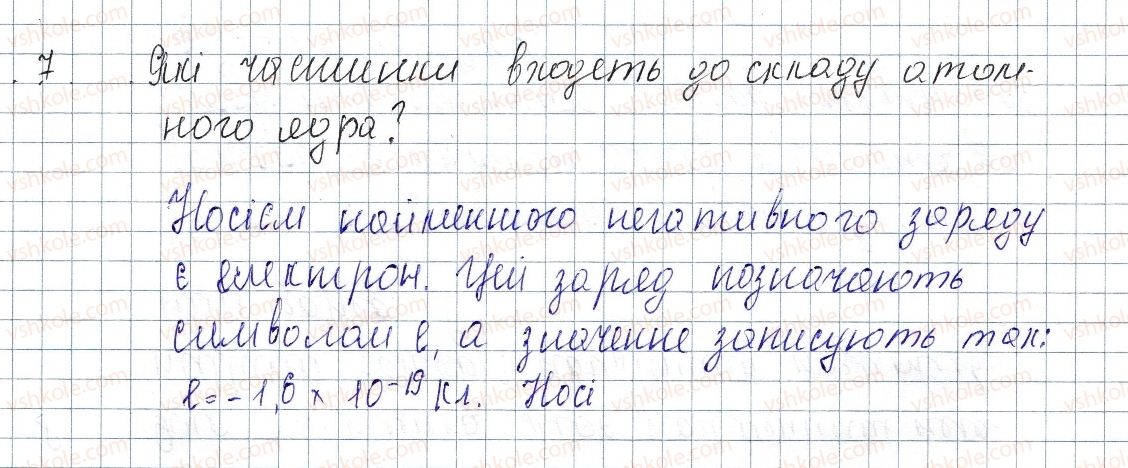 7 Які частинки входять до складу атом-
ного ядра?
Носієм найменшого негативного заряду
є електрон. Цей заряд позначають
символом e, а значення записують так:
e = -1,6 × 10⁻¹⁹ Кл. Носі